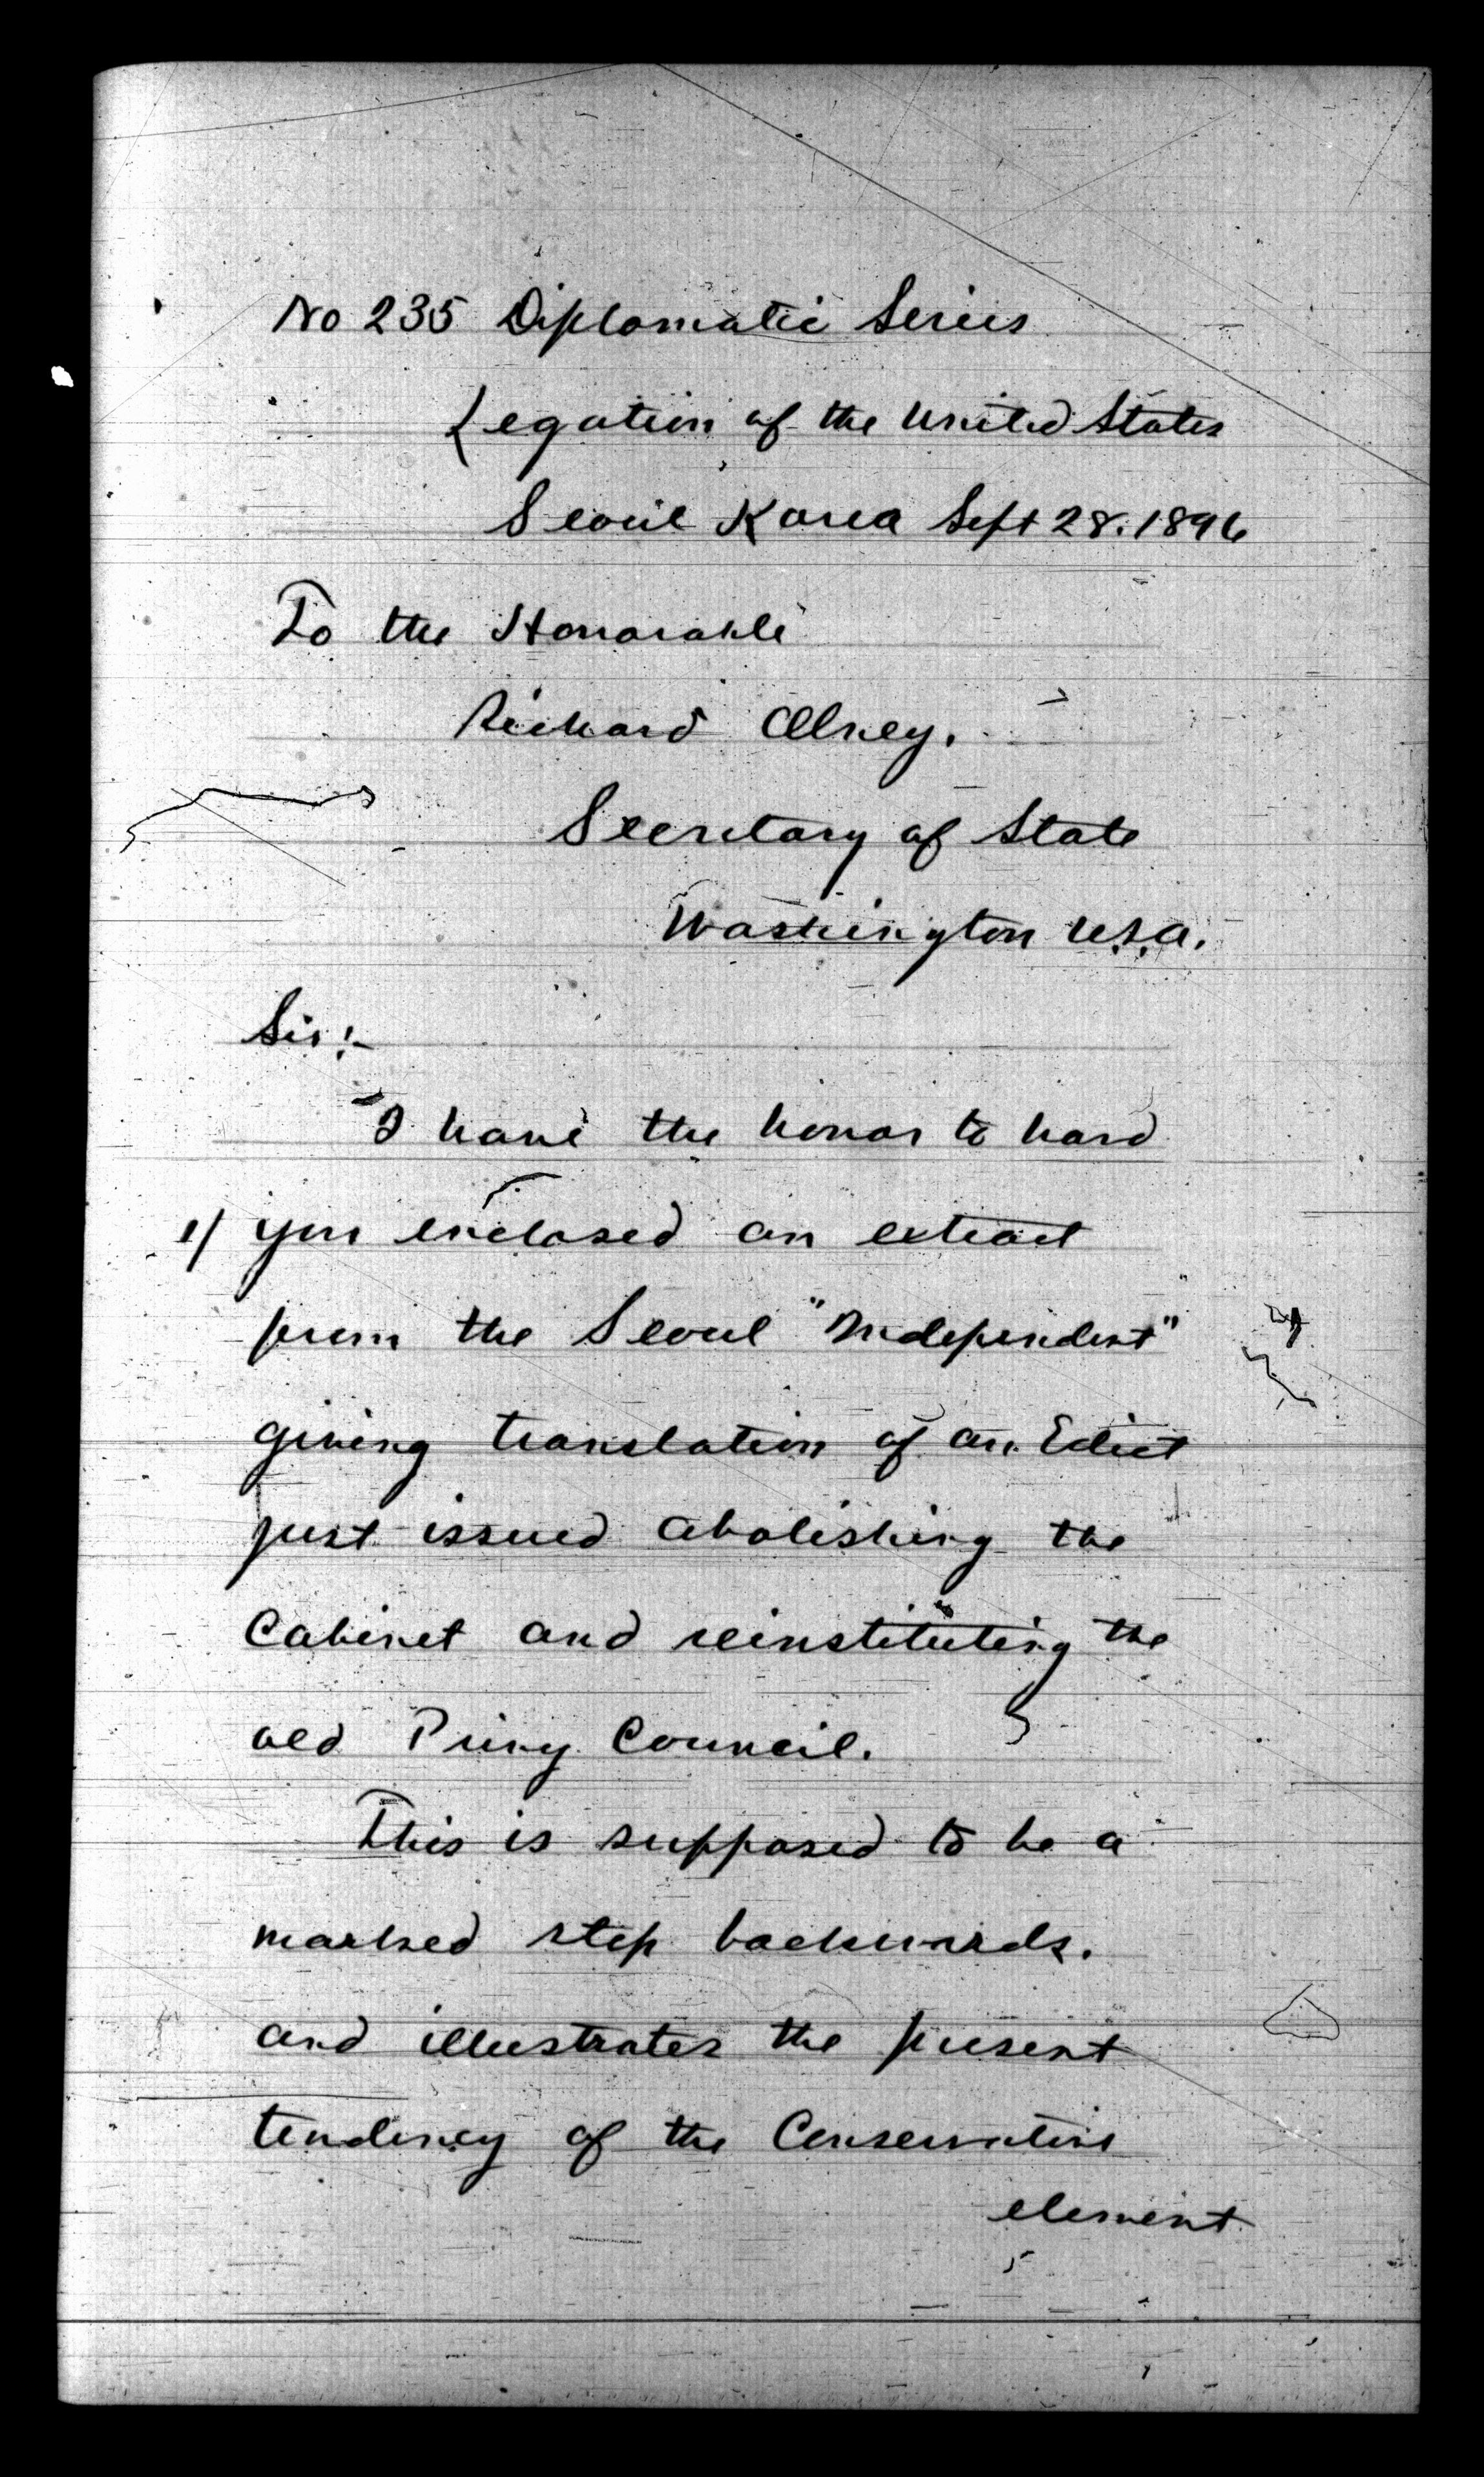 No 235 Diplomatic Series
Legation of the United States
Seoul Korea Sept 28. 1896
To the Honorable
Richard Olney.
Secretary of State
Washington U.S.A.
Sir:-
I have the honor to hand
1/ you enclosed an extract
from the Seoul "Independent"
giving translation of an Edict
just issued abolishing the
Cabinet and reinstituting the
old Privy Council.
This is supposed to be a
marked step backwards.
and illustrates the present
tendency of the Conservative
element